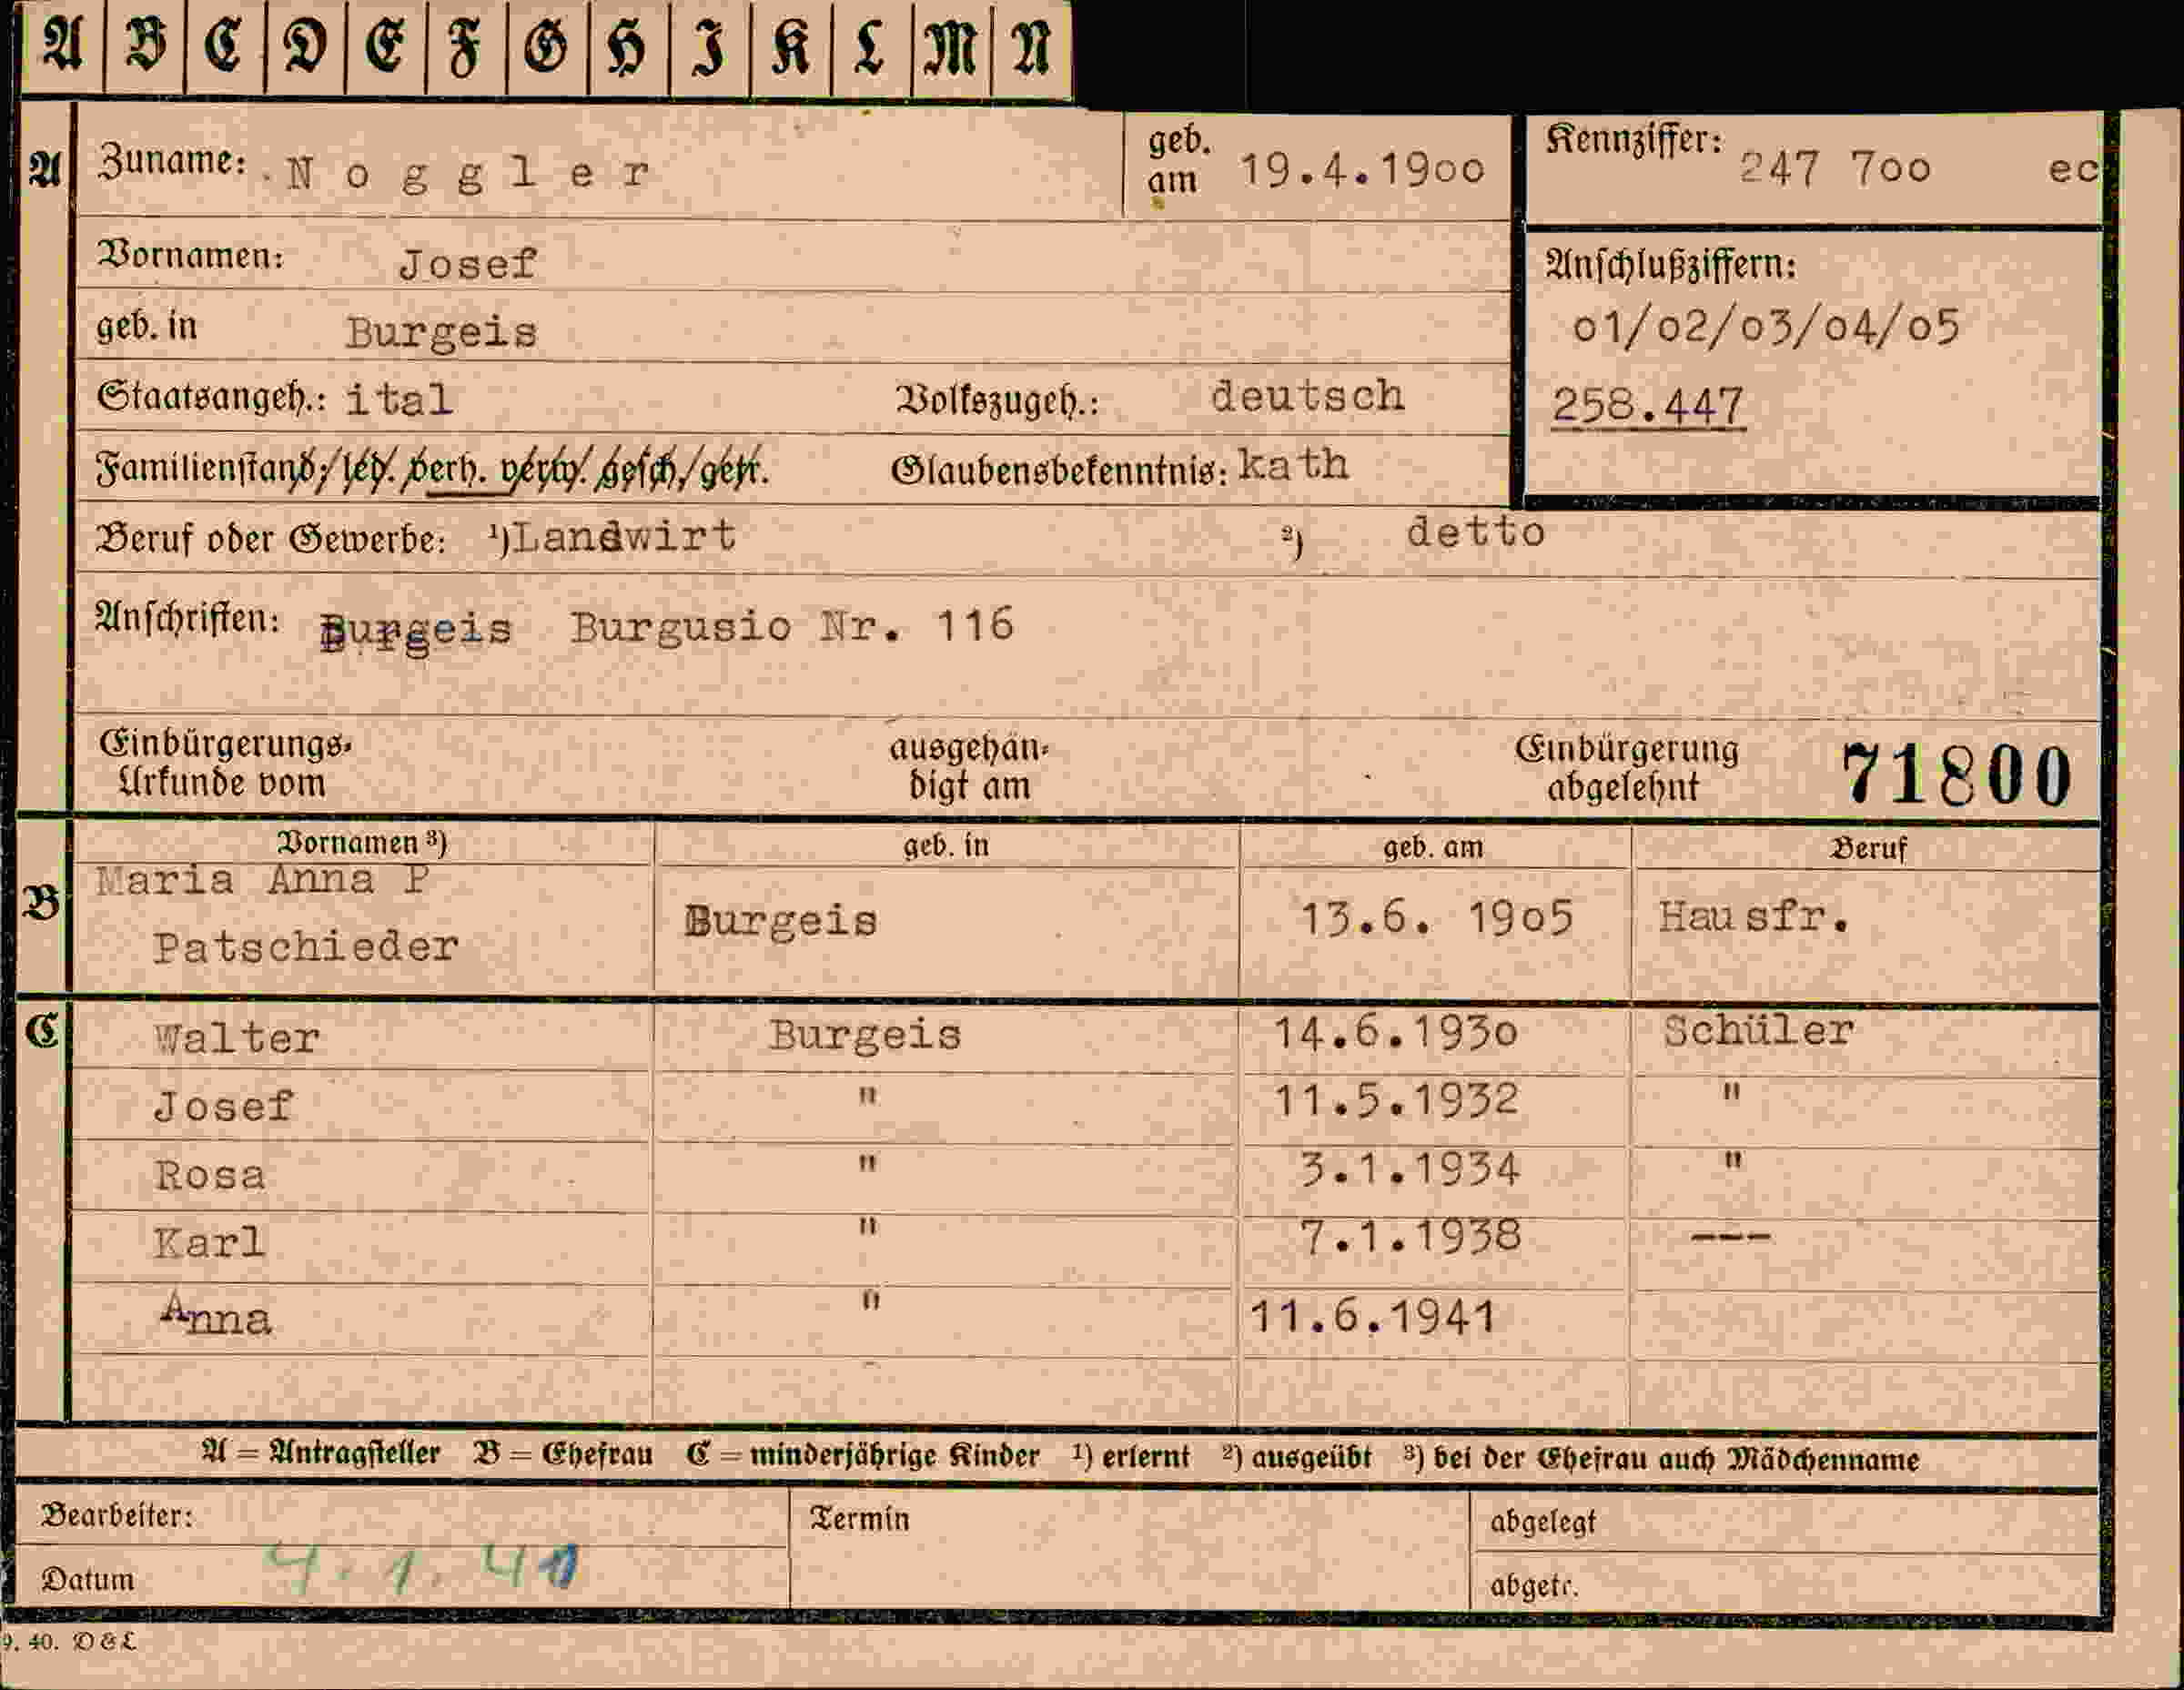 A B C D E F G H I K L M N
A Zuname: Noggler geb. am 19.4.1900 Kennziffer: 247 700 ec
Vornamen: Josef Anschlußziffern:
geb. in Burgeis 01/02/03/04/05
Staatsangeh.: ital Volkszugeh.: deutsch 258.447
Familienstand: led. verh. verw. gesch. getr. Glaubensbekenntnis: kath
Beruf oder Gewerbe: ¹) Landwirt ²) detto
Anschriften: Burgeis Burgusio Nr. 116
Einbürgerungs- ausgehän- Einbürgerung 71800
Urkunde vom digt am abgelehnt
Vornamen ³) geb. in geb. am Beruf
B Maria Anna P
Patschieder Burgeis 13.6. 1905 Hausfr.
C Walter Burgeis 14.6.1930 Schüler
Josef " 11.5.1932 "
Rosa " 3.1.1934 "
Karl " 7.1.1938 ---
Anna " 11.6.1941
A = Antragsteller B = Ehefrau C = minderjährige Kinder ¹) erlernt ²) ausgeübt ³) bei der Ehefrau auch Mädchenname
Bearbeiter: Termin abgelegt
Datum 4.1.41 abgetr.
9. 40. D & L